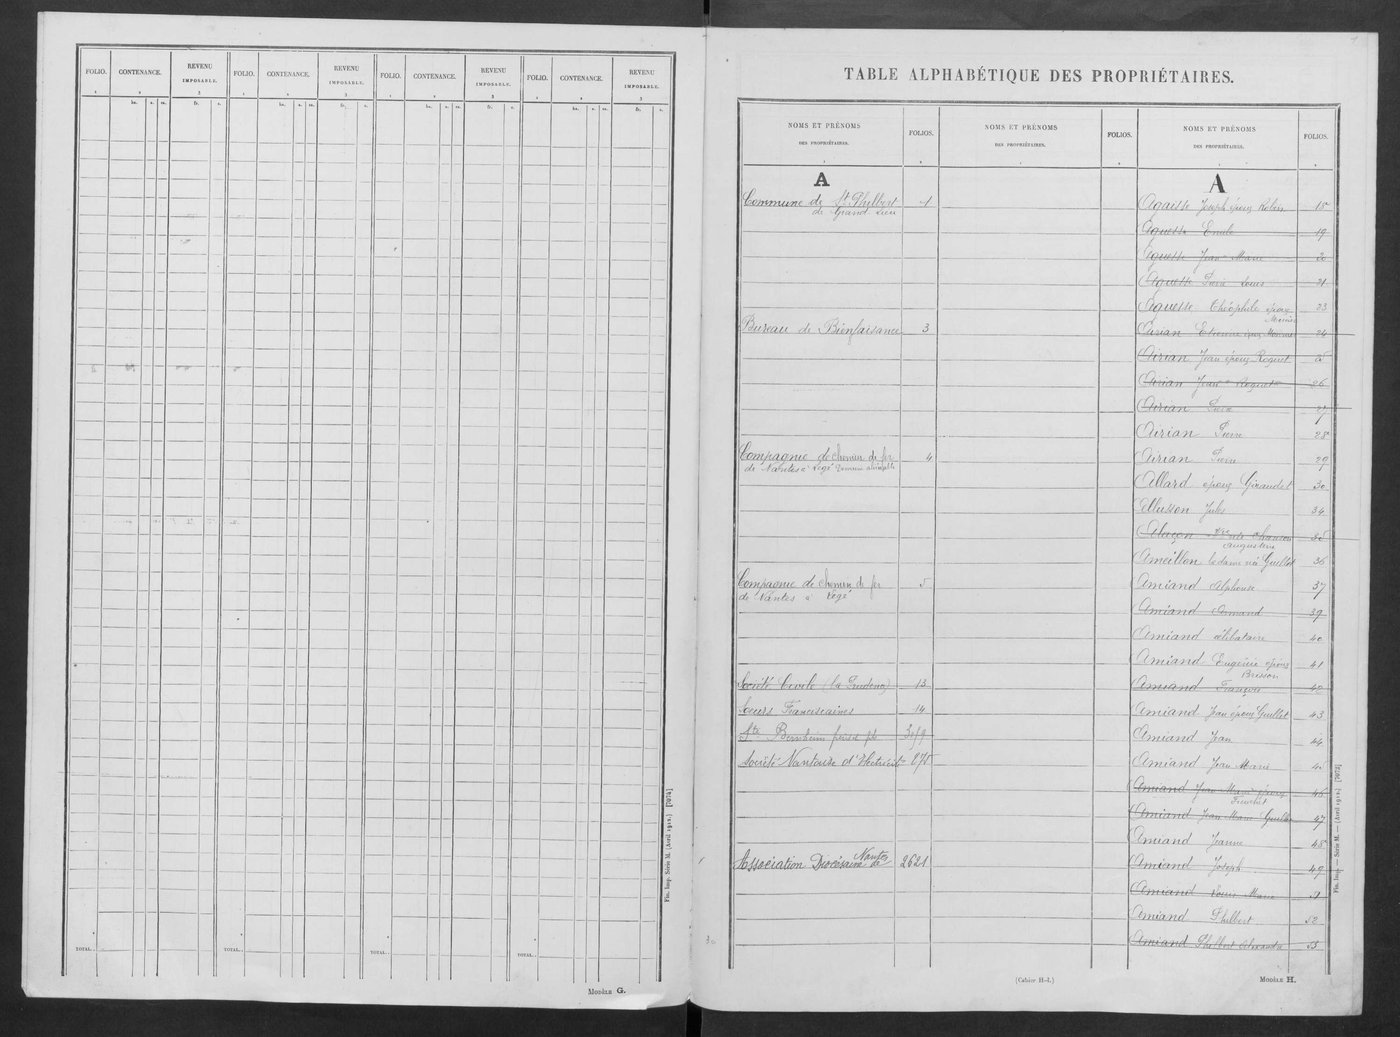 FOLIO. CONTENANCE. REVENU IMPOSABLE. FOLIO. CONTENANCE. REVENU IMPOSABLE. FOLIO. CONTENANCE. REVENU IMPOSABLE. FOLIO. CONTENANCE. REVENU IMPOSABLE.
1 2 3 1 2 3 1 2 3 1 2 3
ha. a. ca. fr. c. ha. a. ca. fr. c. ha. a. ca. fr. c. ha. a. ca. fr. c.
TOTAL. TOTAL. TOTAL. TOTAL.
Fin. Imp. Série M. (Avril 1912.) [7074]
MODÈLE G.
TABLE ALPHABÉTIQUE DES PROPRIÉTAIRES.
NOMS ET PRÉNOMS DES PROPRIÉTAIRES. FOLIOS. NOMS ET PRÉNOMS DES PROPRIÉTAIRES. FOLIOS. NOMS ET PRÉNOMS DES PROPRIÉTAIRES. FOLIOS.
A
Commune de St Philbert 1
de Grand Lieu
Bureau de Bienfaisance 3
Compagnie de chemin de fer 4
de Nantes à Legé
Compagnie de chemin de fer 5
de Nantes à Legé
Société Civile (la 13
Soeurs Franciscaines 14
Sté Bernheim
Société Nantaise d'Electricité
Association Diocésaine de Nantes 2621
A
Agaisse Joseph époux Robin 15
Aguesse Emile 19
Aguesse Jean Marie 20
Aguesse Pierre Louis 21
Aguesse Théophile époux 23
Airian Etienne époux 24
Airian Jean époux Roquet 25
Airian Jean Roquet 26
Airian Pierre 27
Airian Pierre 28
Airian Pierre 29
Allard époux Giraudet 30
Allusson Jules 34
35
Ameillon la dame née Guillot 36
Amiand Alphonse 37
Amiand Armand 39
Amiand célibataire 40
Amiand Eugénie épouse 41
Brisson
Amiand François 42
Amiand Jean époux Guillet 43
Amiand Jean 44
Amiand Jean Marie 45
Amiand Jean Marie époux 46
Amiand Jean Marie 47
Amiand Jeanne 48
Amiand Joseph 49
Amiand Louis Marie 51
Amiand Philbert 52
Amiand Philbert Alexandre 53
Fin. Imp. — Série M. — (Avril 1912.) [7072]
(Cahier H-I.)
MODÈLE H.